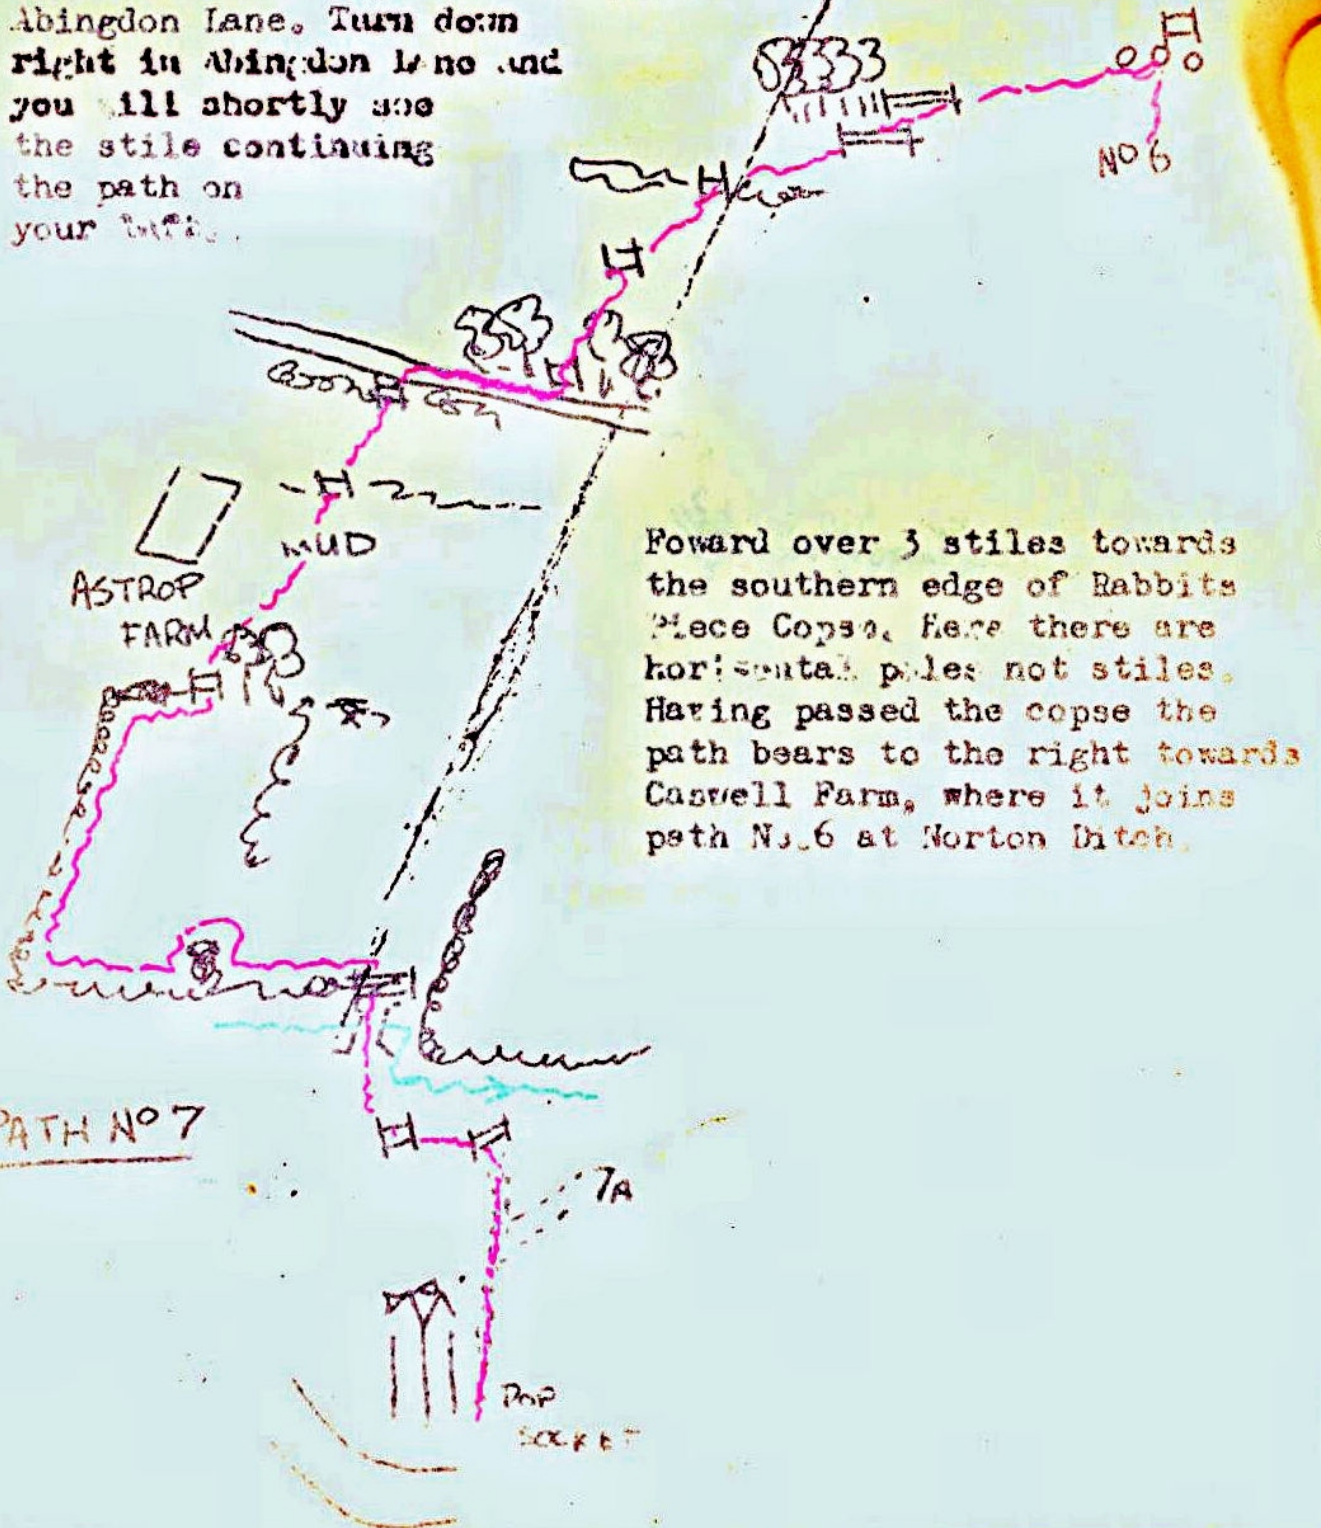 Abingdon Lane. Turn down
right in Abingdon Lane and
you will shortly see
the stile continuing
the path on
your
No 6
Foward over 3 stiles towards
the southern edge of Rabbits
Piece Copse. Here there are
horizontal poles not stiles.
Having passed the copse the
path bears to the right towards
Caswell Farm, where it joins
path No.6 at Norton Ditch.
MUD
ASTROP
FARM
PATH No 7
7A
POP
SOCKET